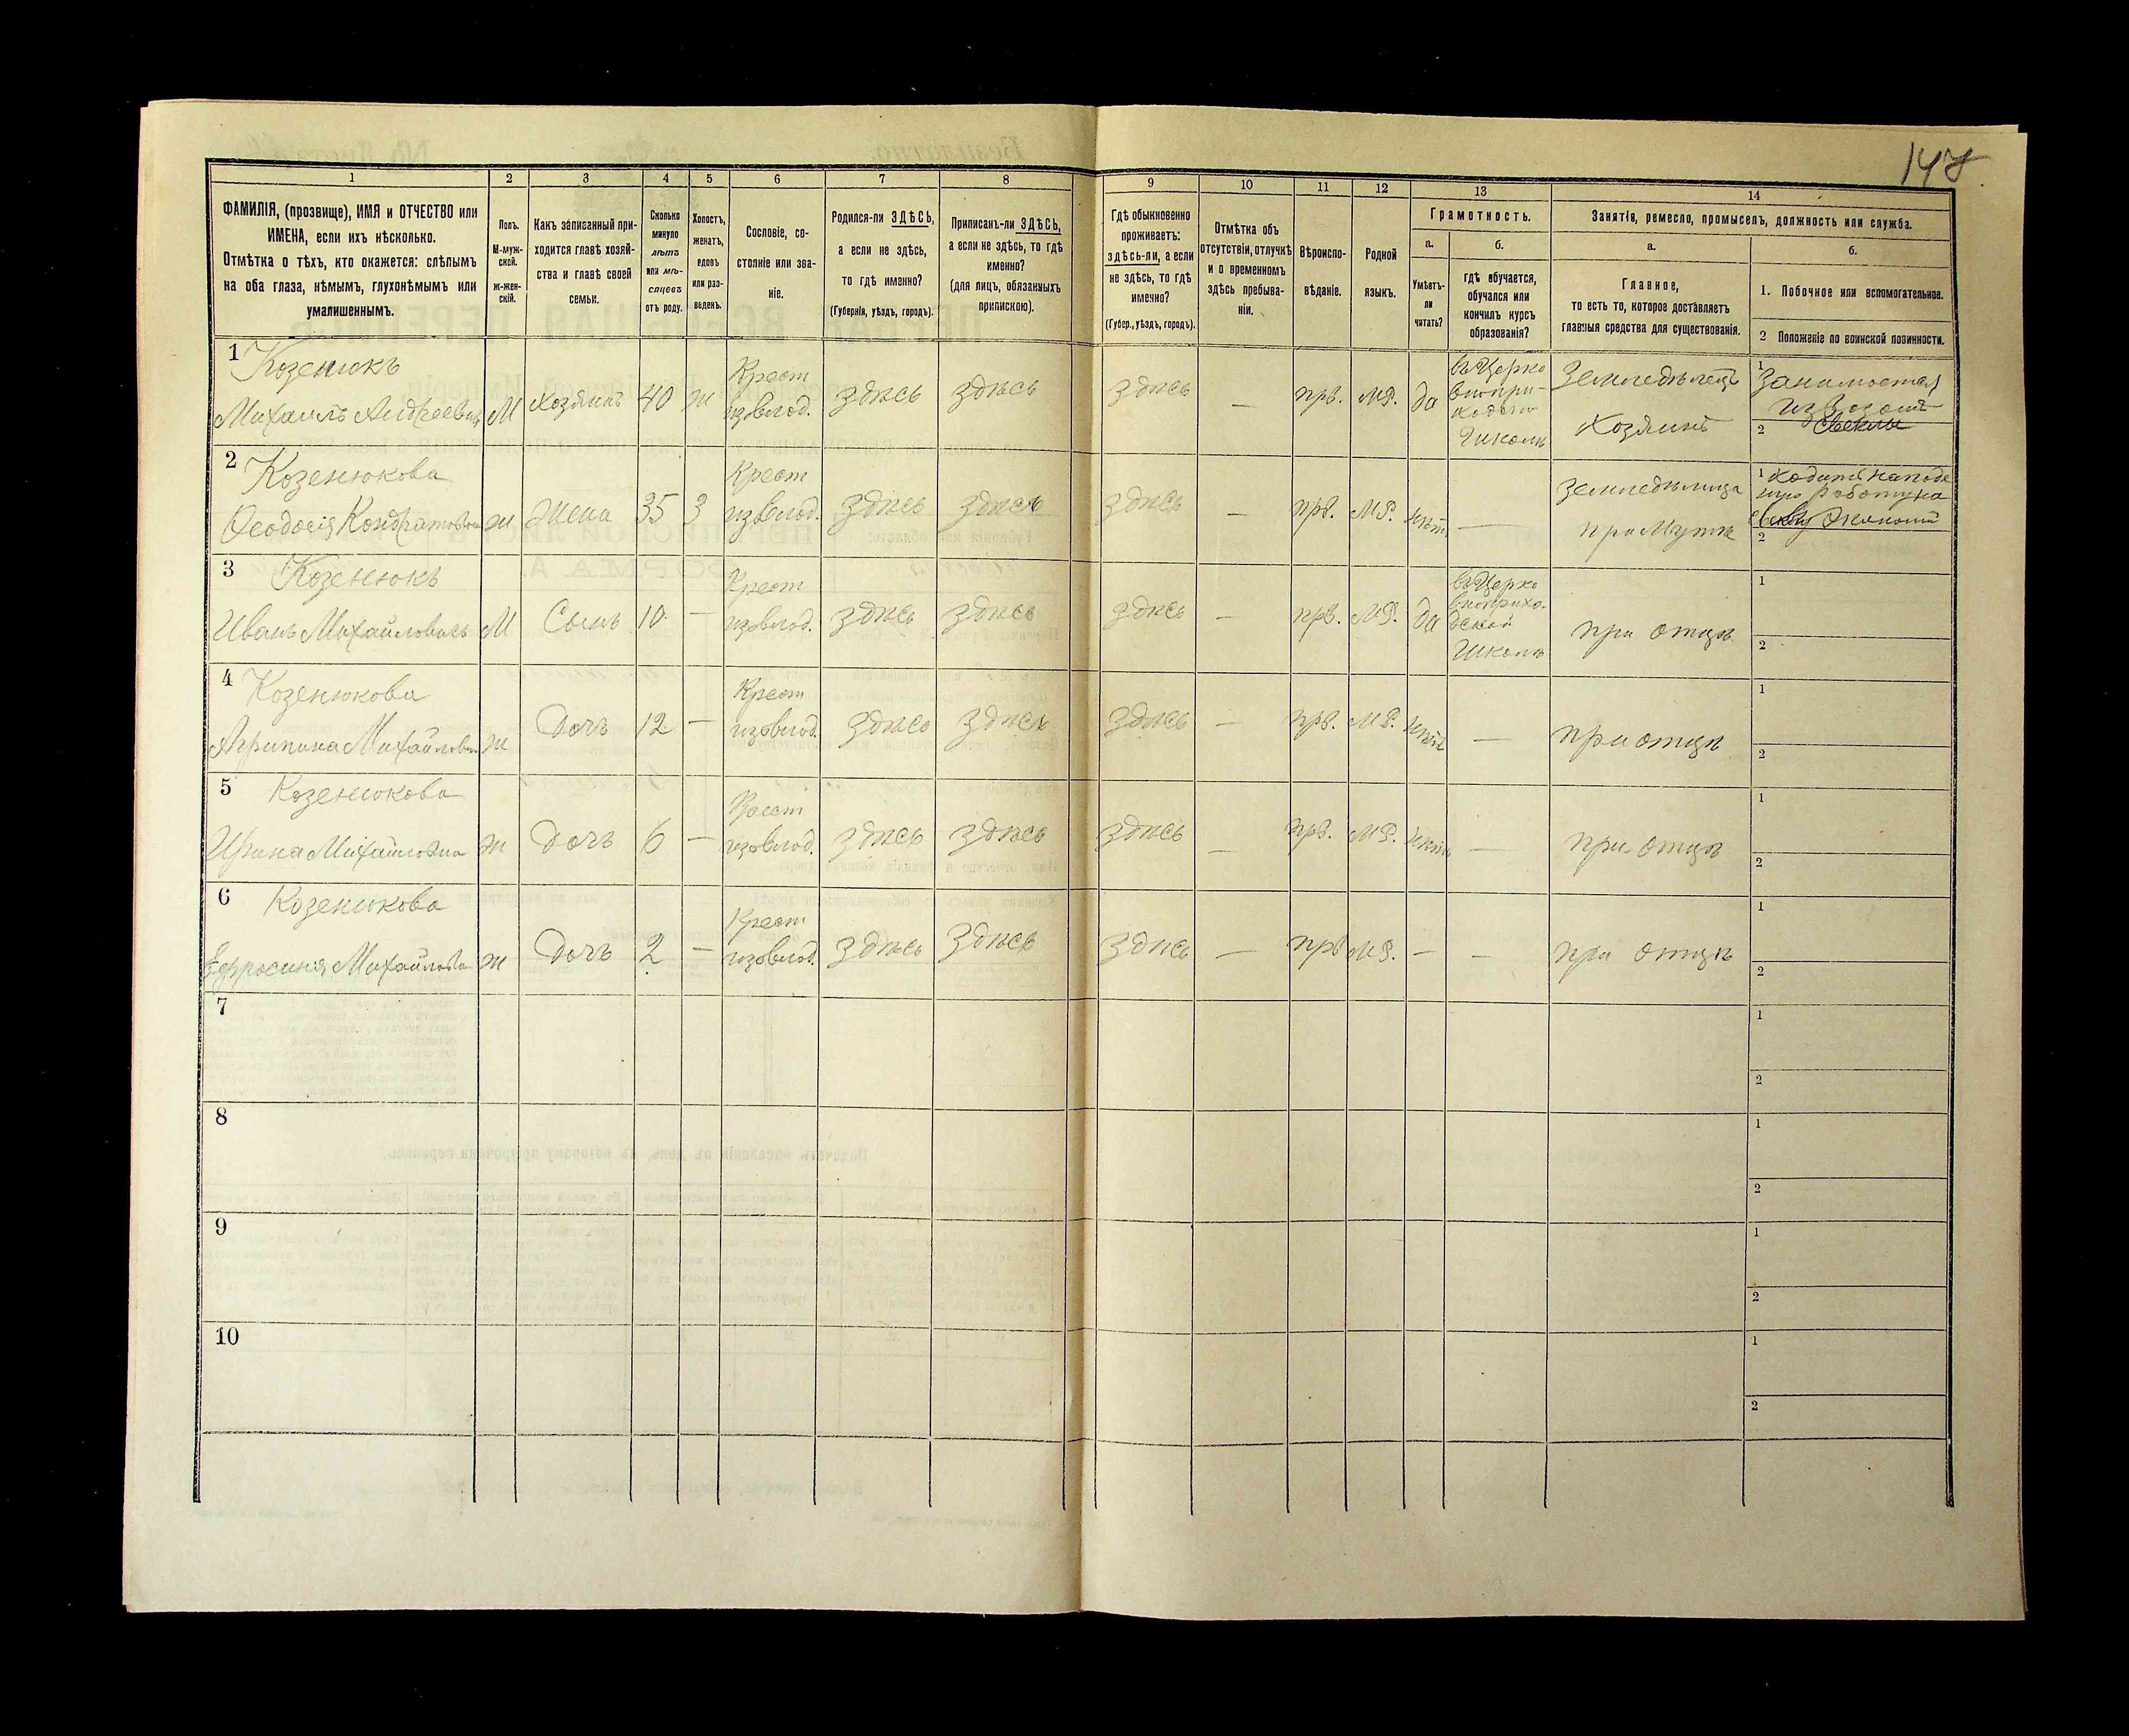 147
1 2 3 4 5 6 7 8 9 10 11 12 13 14
ФАМИЛІЯ, (прозвище), ИМЯ и ОТЧЕСТВО или
ИМЕНА, если ихъ нѣсколько.
Отмѣтка о тѣхъ, кто окажется: слѣпымъ
на оба глаза, нѣмымъ, глухонѣмымъ или
умалишеннымъ.
Полъ.
М-муж-
ской.
Ж-жен-
скій.
Какъ записанный при-
ходится главѣ хозяй-
ства и главѣ своей
семьи.
Сколько
минуло
лѣтъ
или мѣ-
сяцевъ
отъ роду.
Холостъ,
женатъ,
вдовъ
или раз-
веденъ.
Сословіе, со-
стояніе или зва-
ніе.
Родился-ли ЗДѢСЬ,
а если не здѣсь,
то гдѣ именно?
(Губернія, уѣздъ, городъ).
Приписанъ-ли ЗДѢСЬ,
а если не здѣсь, то гдѣ
именно?
(для лицъ, обязанныхъ
припискою).
Гдѣ обыкновенно
проживаетъ:
здѣсь-ли, а если
не здѣсь, то гдѣ
именно?
(Губер., уѣздъ, городъ).
Отмѣтка объ
отсутствіи, отлучкѣ
и о временномъ
здѣсь пребыва-
ніи.
Вѣроиспо-
вѣданіе.
Родной
языкъ.
Грамотность.
а.
Умѣетъ-
ли
читать?
б.
гдѣ обучается,
обучался или
кончилъ курсъ
образованія?
Занятія, ремесло, промыселъ, должность или служба.
а.
Главное,
то есть то, которое доставляетъ
главныя средства для существованія.
б.
1. Побочное или вспомогательное.
2 Положеніе по воинской повинности.
1 Козенюкъ
Михаилъ Андреевичъ М Хозяинъ 40 ж Крест
изъ влод. здѣсь здѣсь здѣсь — прв. МР. да
въ Церко
вноприход
Школѣ
Земледѣлецъ
Хозяинъ
1 занимается
2 Свеклы
2 Козенюкова
Ѳеодосія Кондратовна ж Жена 35 З Крест
изъ влод. здѣсь здѣсь здѣсь — прв. МР. нѣтъ —
Земледѣлица
при Мужѣ
1 Ходитъ на
2
3 Козенюкъ
Иванъ Михайловичъ М Сынъ 10 — Крест
изъ влод. здѣсь здѣсь здѣсь — прв. МР. да
въ Церко
внприхо-
дской
Школѣ
при отцѣ
1
2
4 Козенюкова
Агрипина Михайловна ж Дочь 12 — Крест
изъ влод. здѣсь здѣсь здѣсь — прв. МР. нѣтъ — при отцѣ
1
2
5 Козенюкова
Ирина Михайловна ж Дочь 6 — Крест
изъ влод. здѣсь здѣсь здѣсь — прв. МР. нѣтъ — при отцѣ
1
2
6 Козенюкова
Ефросинія Михайловна ж Дочь 2 — Крест
изъ влод. здѣсь здѣсь здѣсь — прв МР. — — при отцѣ
1
2
7
1
2
8
1
2
9
1
2
10
1
2